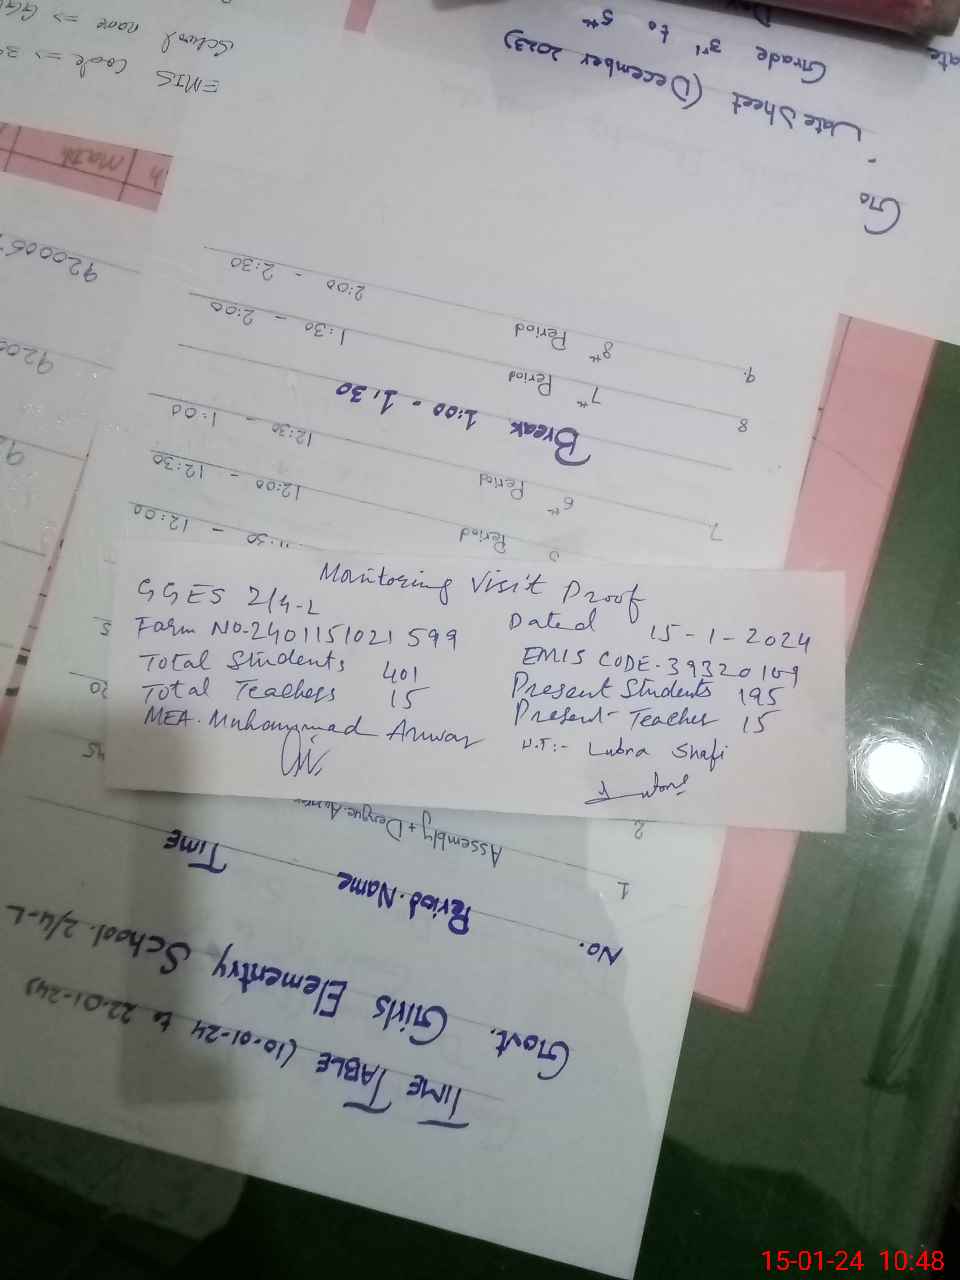 Monitoring Visit Proof
GGES 2/4-L
Dated 15-1-2024
Farm No-2401151021599
EMIS CODE-39320109
Total Students 401
Present Students 195
Total Teachers 15
Present-Teacher 15
MEA. Muhammad Anwar
H.T:- Lubna Shafi
TIME TABLE (10-01-24 to 22-01-24)
Govt. Girls Elementry School. 2/4-L
No. Period-Name TIME
1 Assembly + Dengue
2
45
20
5
11:30 - 12:00
Period 12:00 - 12:30
7 6th Period 12:30 - 1:00
Break 1:00 - 1:30
8 7th Period 1:30 - 2:00
9. 8th Period 2:00 - 2:30
Date Sheet (December 2023)
Grade 3rd to 5th
School name =>
EMIS Code => 39
Math
15-01-24 10:48